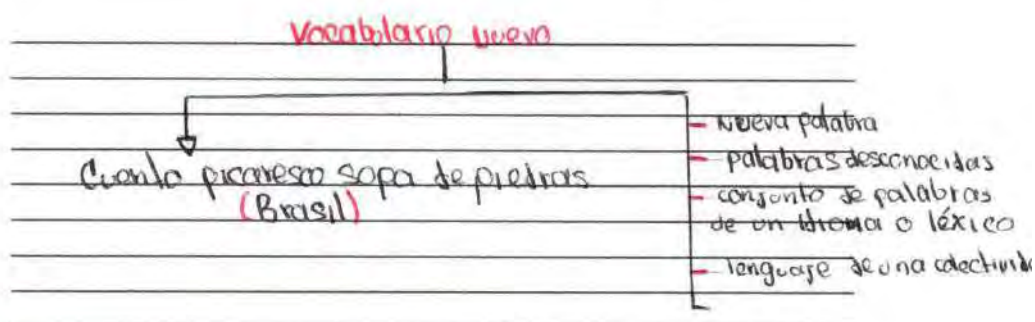 Vocabolario nuevo
Cuento picaresco sopa de piedras
(Brasil)
- Nueva palabra
- palabras desconocidas
- conjunto de palabras
de un idioma o léxico
- lenguaje de una colectivida